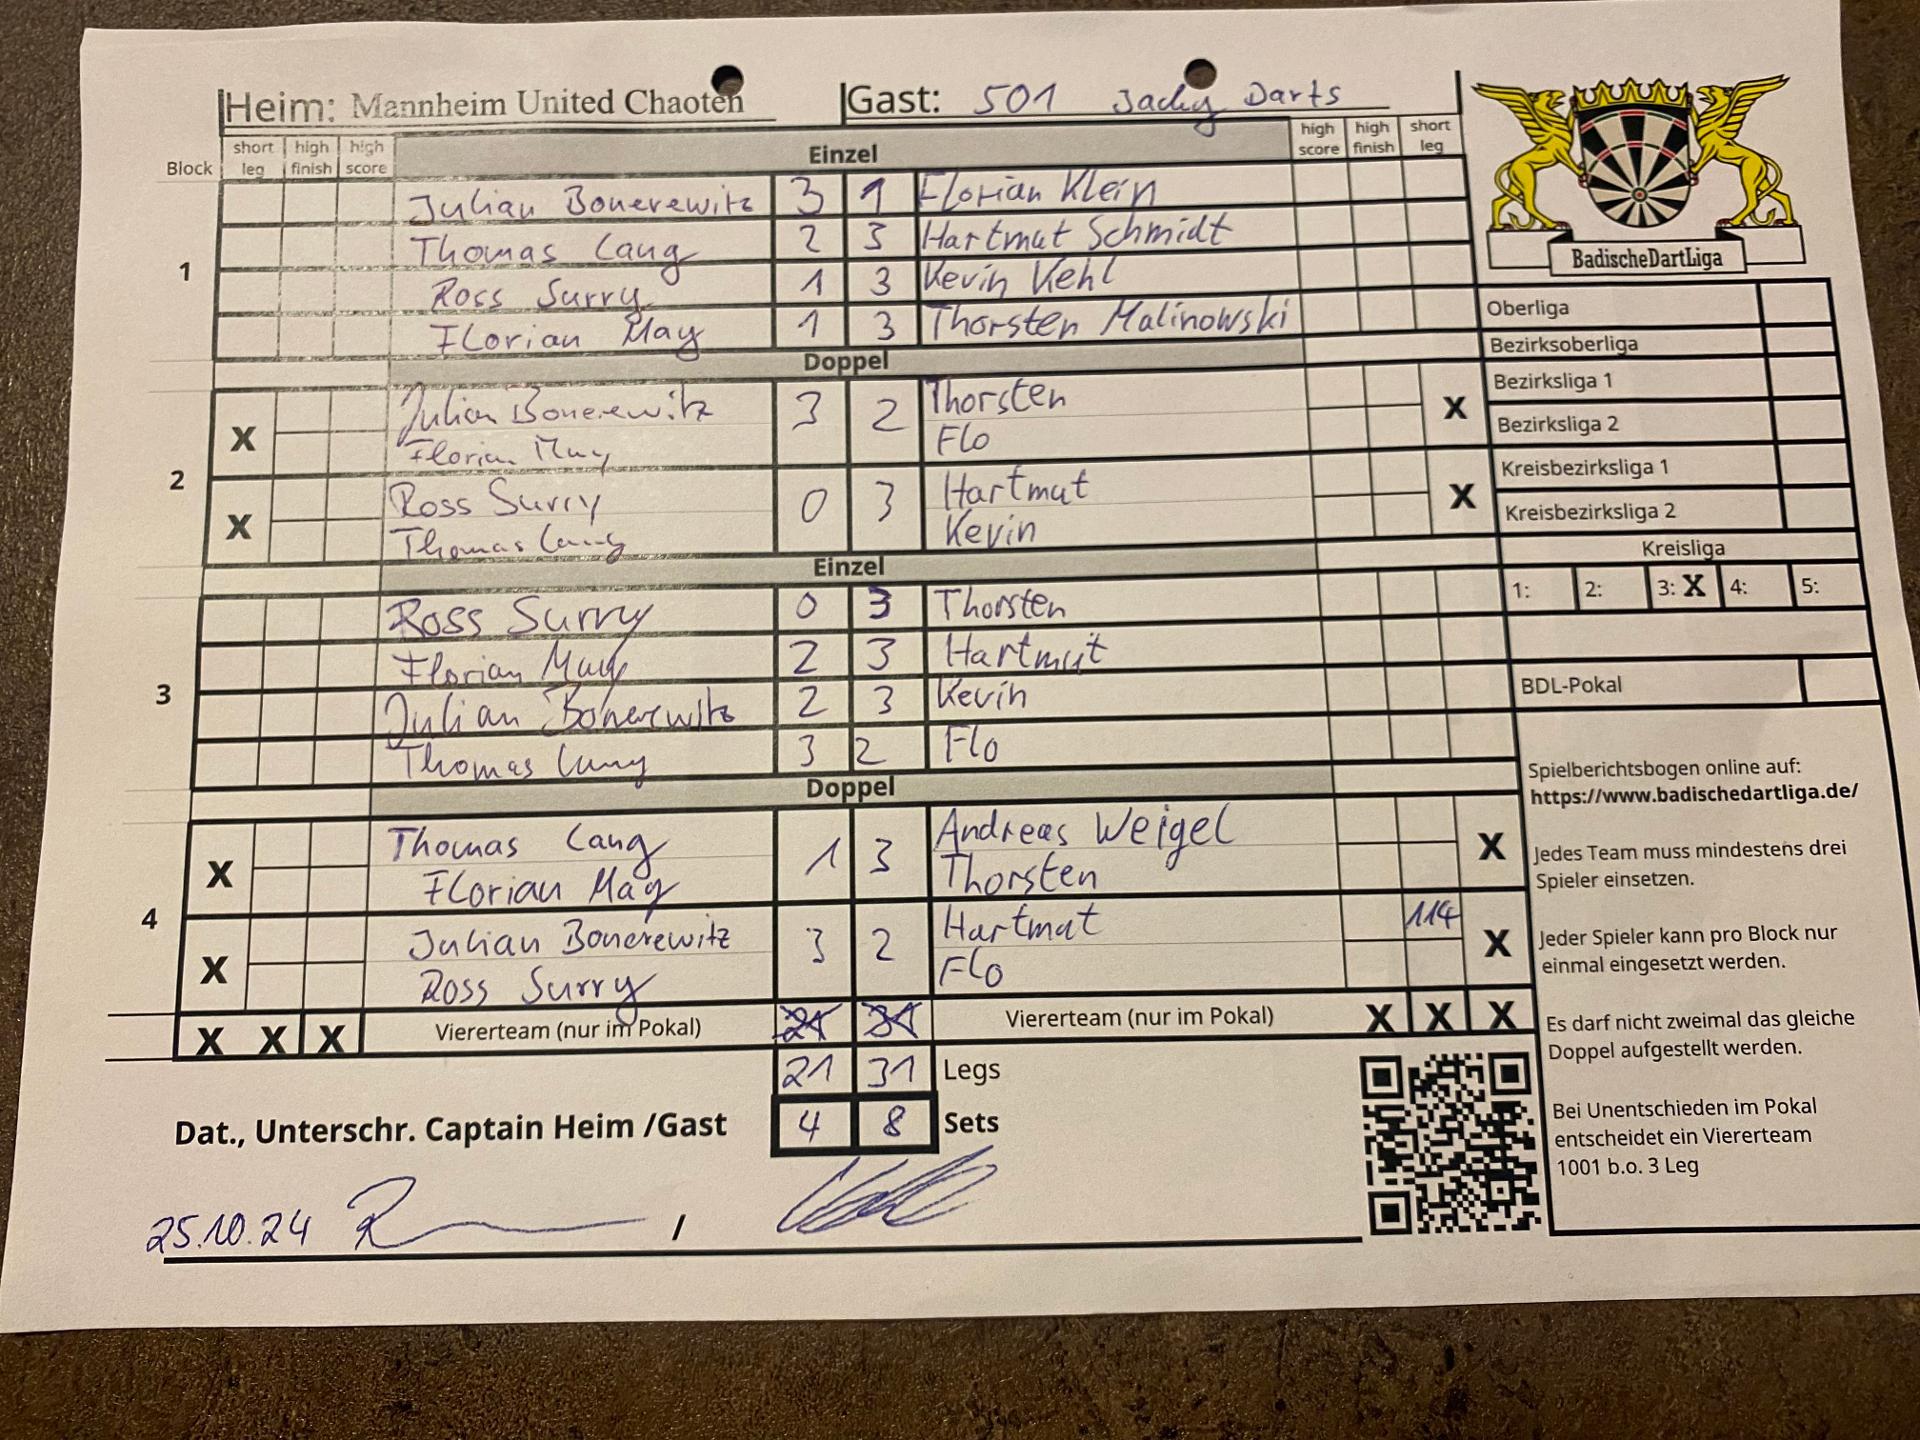 Heim: Mannheim United Chaoten Gast: 501 Jacky Darts
Block short leg high finish high score Einzel high score high finish short leg
1
Julian Bonerewitz 3 1 Florian Klein
Thomas Lang 2 3 Hartmut Schmidt
Ross Surry 1 3 Kevin Kehl
Florian May 1 3 Thorsten Malinowski
Doppel
2
X Julian Bonerewitz 3 2 Thorsten X
Florian May Flo
X Ross Surry 0 3 Hartmut X
Thomas Lang Kevin
Einzel
3
Ross Surry 0 3 Thorsten
Florian May 2 3 Hartmut
Julian Bonerewitz 2 3 Kevin
Thomas Lang 3 2 Flo
Doppel
4
X Thomas Lang 1 3 Andreas Weigel X
Florian May Thorsten
X Julian Bonerewitz 3 2 Hartmut 114 X
Ross Surry Flo
X X X Viererteam (nur im Pokal) 21 31 Viererteam (nur im Pokal) X X X
21 31 Legs
Dat., Unterschr. Captain Heim /Gast 4 8 Sets
25.10.24 /
BadischeDartLiga
Oberliga
Bezirksoberliga
Bezirksliga 1
Bezirksliga 2
Kreisbezirksliga 1
Kreisbezirksliga 2
Kreisliga
1: 2: 3: X 4: 5:
BDL-Pokal
Spielberichtsbogen online auf:
https://www.badischedartliga.de/
Jedes Team muss mindestens drei
Spieler einsetzen.
Jeder Spieler kann pro Block nur
einmal eingesetzt werden.
Es darf nicht zweimal das gleiche
Doppel aufgestellt werden.
Bei Unentschieden im Pokal
entscheidet ein Viererteam
1001 b.o. 3 Leg